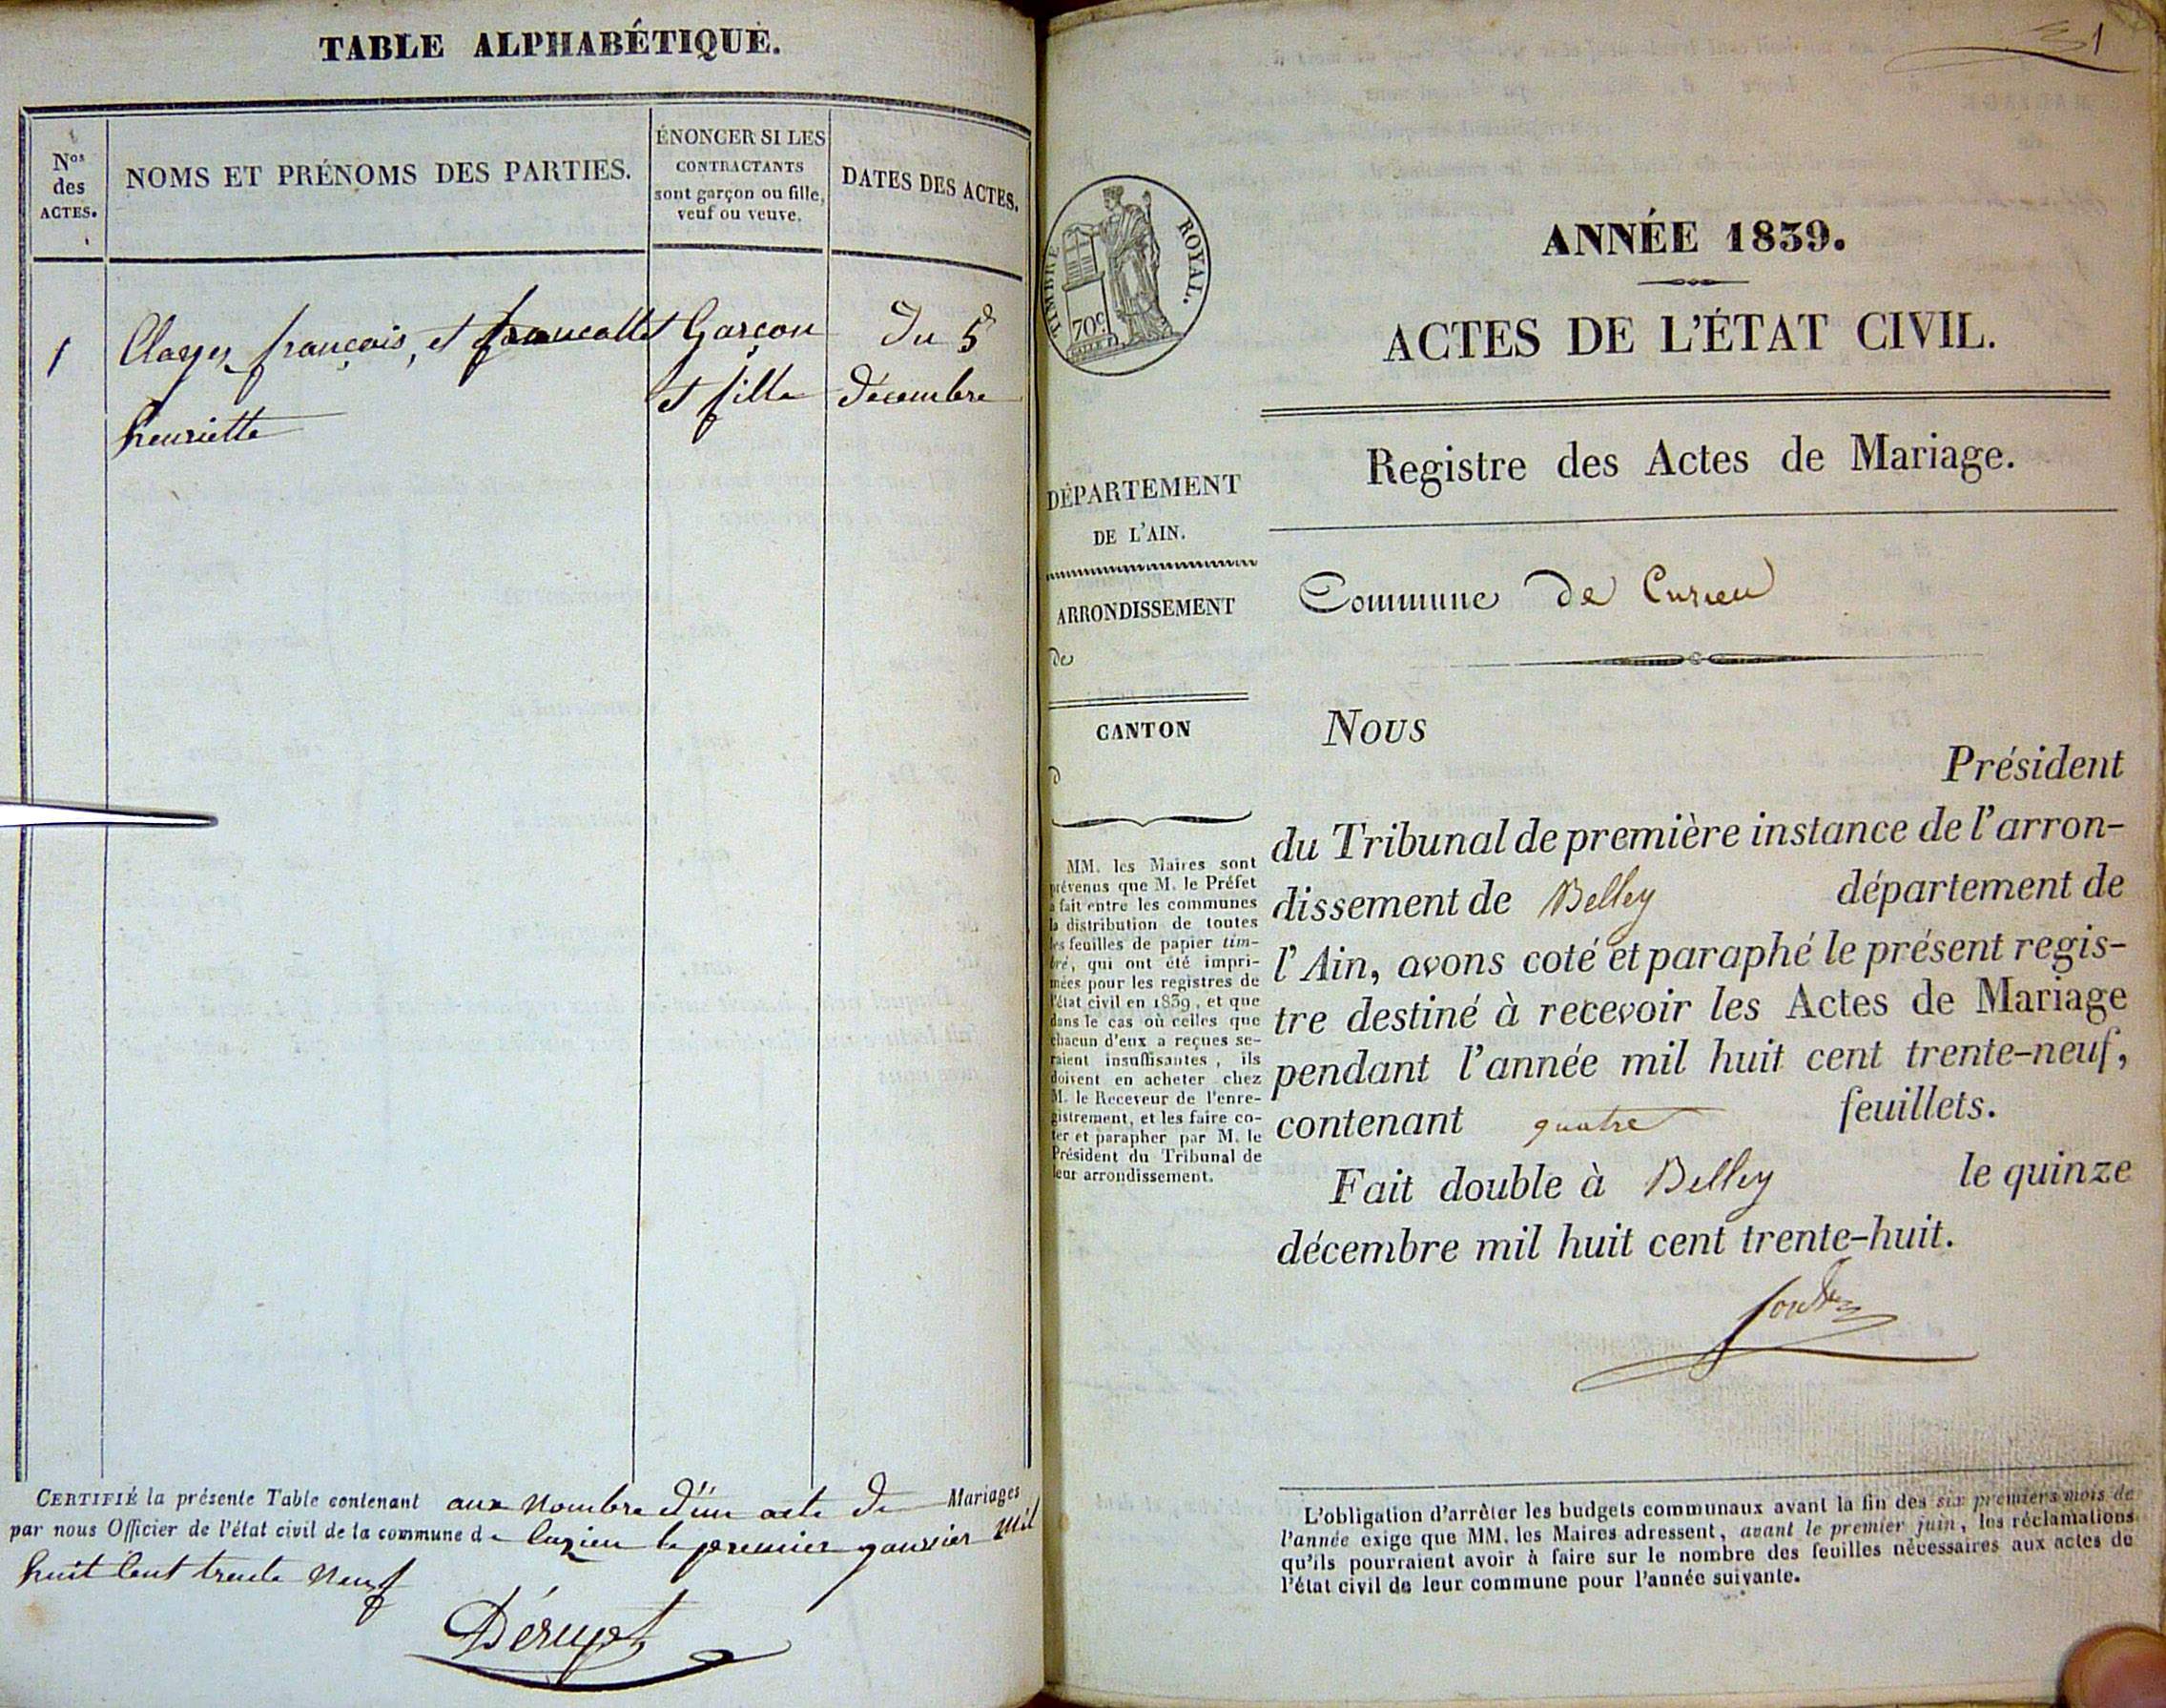 TABLE ALPHABÉTIQUE.
Nos
des
ACTES.
NOMS ET PRÉNOMS DES PARTIES.
ÉNONCER SI LES
CONTRACTANTS
sont garçon ou fille,
veuf ou veuve.
DATES DES ACTES.
1
françois, et
henriette
Garçon
et fille
Du 5
décembre
CERTIFIÉ la présente Table contenant aux Nombre d'un acte de Mariages
par nous Officier de l'état civil de la commune de Cuzieu le premier janvier mil
huit Cent trente Neuf
1
TIMBRE ROYAL.
70c
ANNÉE 1839.
ACTES DE L'ÉTAT CIVIL.
Registre des Actes de Mariage.
DÉPARTEMENT
DE L'AIN.
ARRONDISSEMENT
de
CANTON
d
Commune de Cuzieu
Nous
Président
du Tribunal de première instance de l'arron-
dissement de Belley département de
l'Ain, avons coté et paraphé le présent regis-
tre destiné à recevoir les Actes de Mariage
pendant l'année mil huit cent trente-neuf,
contenant quatre feuillets.
Fait double à Belley le quinze
décembre mil huit cent trente-huit.
MM. les Maires sont
prévenus que M. le Préfet
a fait entre les communes
la distribution de toutes
les feuilles de papier tim-
bré, qui ont été impri-
mées pour les registres de
l'état civil en 1839, et que
dans le cas où celles que
chacun d'eux a reçues se-
raient insuffisantes, ils
doivent en acheter chez
M. le Receveur de l'enre-
gistrement, et les faire co-
ter et parapher par M. le
Président du Tribunal de
leur arrondissement.
L'obligation d'arrêter les budgets communaux avant la fin des six premiers mois de
l'année exige que MM. les Maires adressent, avant le premier juin, les réclamations
qu'ils pourraient avoir à faire sur le nombre des feuilles nécessaires aux actes de
l'état civil de leur commune pour l'année suivante.